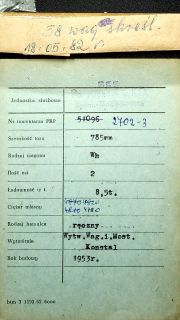 38 wag skreśl.
18.05.82 r
Jednostka służbowa
Nr inwentarza PKP 51096 2702-3
Szerokość toru 785mm
Rodzaj wagonu Wh
Ilość osi 2
Ładowność w t. 8,5t.
Ciężar własny
Rodzaj hamulca ręczny
Wytwórnia Wytw.Wag.i Most.
Konstal
Rok budowy 1953r.